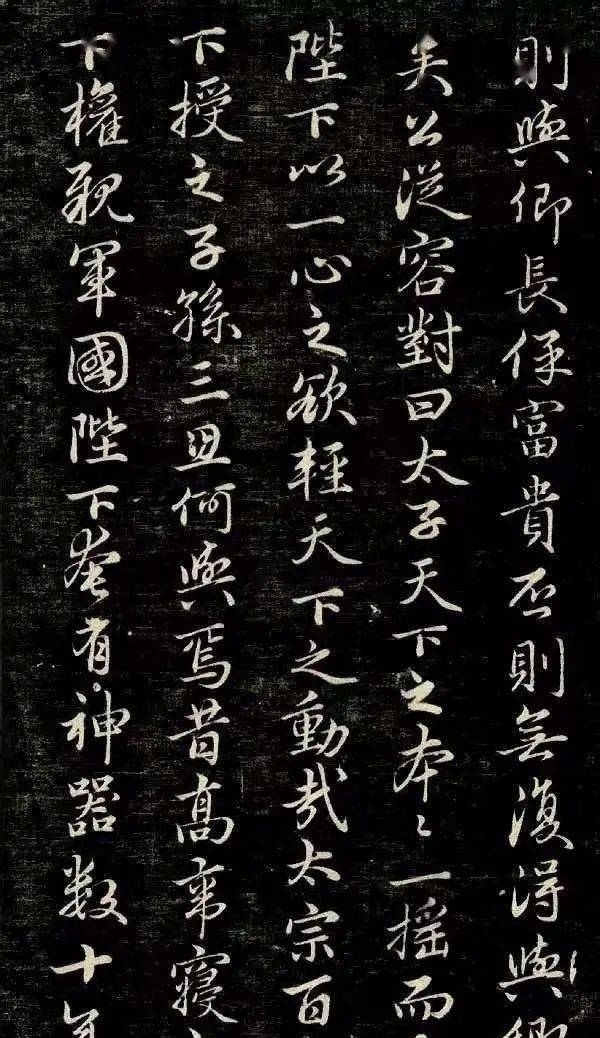 則與卿長保富貴否則無復得與卿
矣公從容對曰太子天下之本〻一搖而
陛下以一心之欲輕天下之動哉太宗百
下授之子孫三思何與焉昔高帝寢
下權親軍國陛下奄有神器数十年